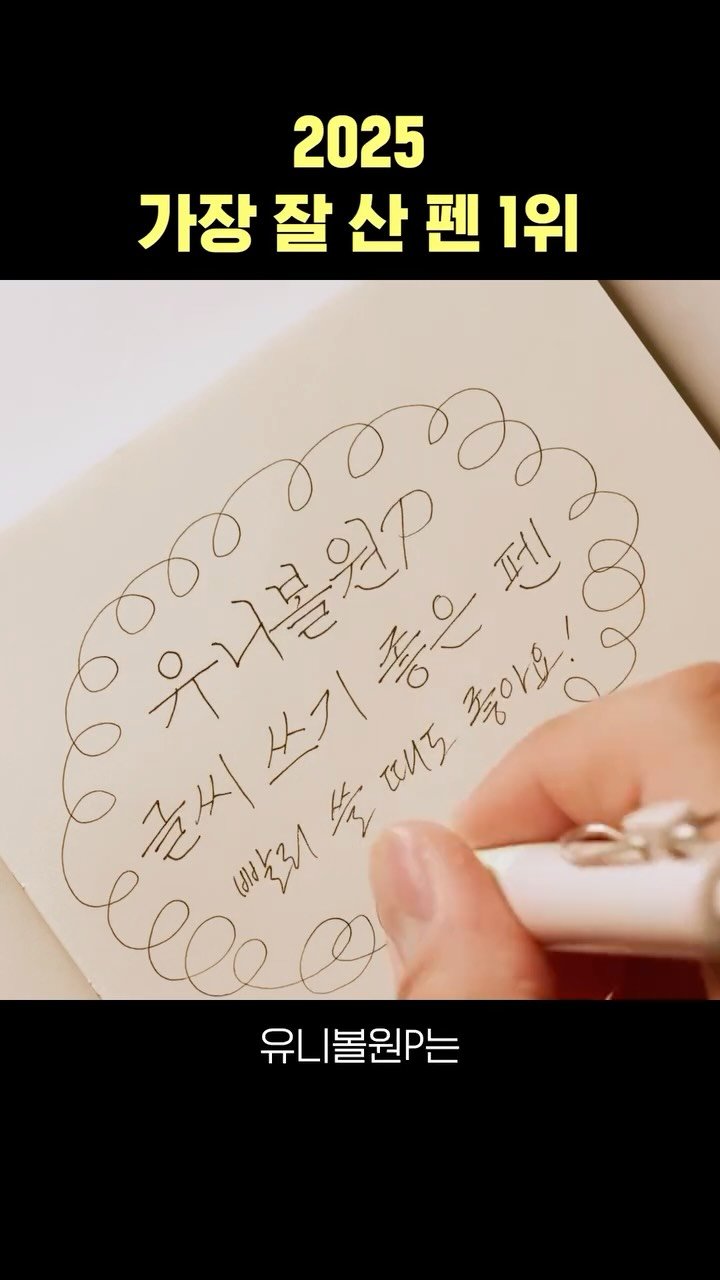 2025
가장 잘 산 펜 1위
유니볼원P
글씨 쓰기 좋은 펜
빨리 쓸 때도 좋아요!
유니볼원P는